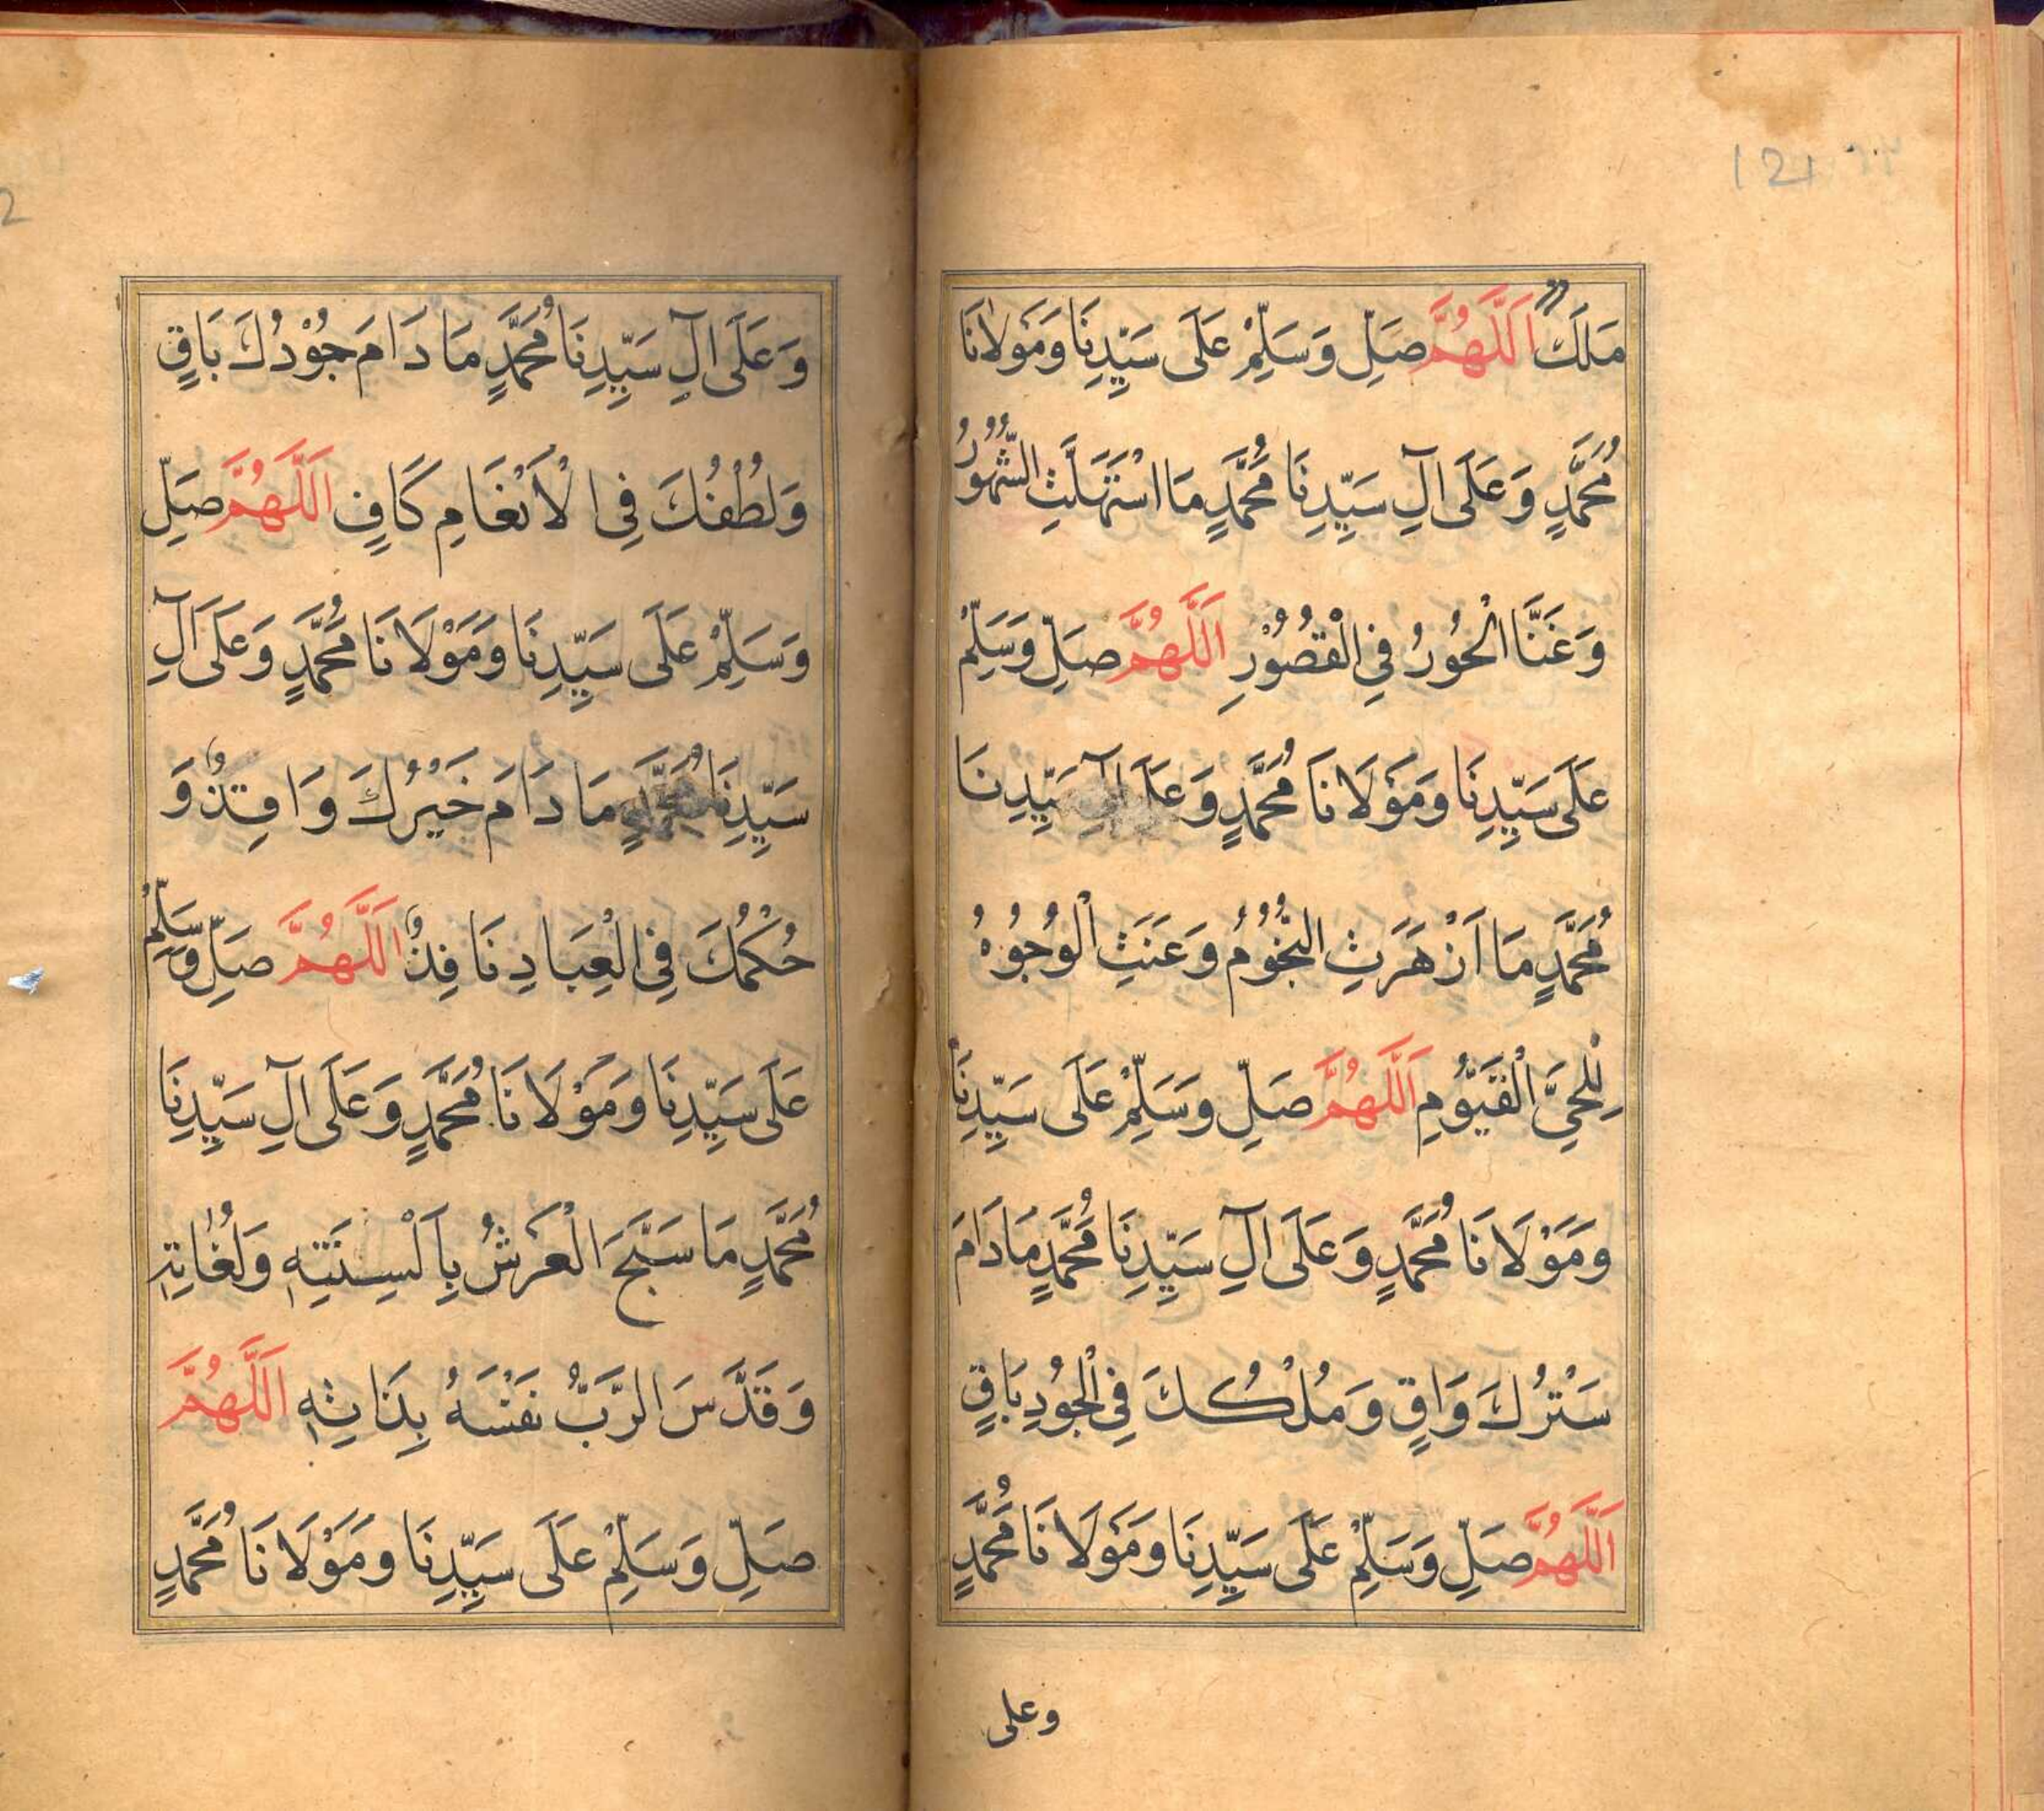 121
مَلَكٌ اَللّٰهُمَّ صَلِّ وَسَلِّمْ عَلَى سَيِّدِنَا وَمَوْلَانَا
مُحَمَّدٍ وَعَلَى آلِ سَيِّدِنَا مُحَمَّدٍ مَا اسْتَهَلَّتِ الشُّهُوْرُ
وَغَنَّا الْحُوْرُ فِي الْقُصُوْرِ اَللّٰهُمَّ صَلِّ وَسَلِّمْ
عَلَى سَيِّدِنَا وَمَوْلَانَا مُحَمَّدٍ وَعَلَى آلِ سَيِّدِنَا
مُحَمَّدٍ مَا اَزْهَرَتِ النُّجُوْمُ وَعَنَتِ الْوُجُوْهُ
لِلْحَيِّ الْقَيُّوْمِ اَللّٰهُمَّ صَلِّ وَسَلِّمْ عَلَى سَيِّدِنَا
وَمَوْلَانَا مُحَمَّدٍ وَعَلَى آلِ سَيِّدِنَا مُحَمَّدٍ مَا دَامَ
سَتْرُكَ وَاقٍ وَمُلْكُكَ فِي الْجُودِ بَاقٍ
اَللّٰهُمَّ صَلِّ وَسَلِّمْ عَلَى سَيِّدِنَا وَمَوْلَانَا مُحَمَّدٍ
وعلى
وَعَلَى آلِ سَيِّدِنَا مُحَمَّدٍ مَا دَامَ جُوْدُكَ بَاقٍ
وَلُطْفُكَ فِي الْاَنْغَامِ كَافٍ اَللّٰهُمَّ صَلِّ
وَسَلِّمْ عَلَى سَيِّدِنَا وَمَوْلَانَا مُحَمَّدٍ وَعَلَى آلِ
سَيِّدِنَا مُحَمَّدٍ مَا دَامَ خَيْرُكَ وَافِدٌ وَ
حُكْمُكَ فِي الْعِبَادِ نَافِذٌ اَللّٰهُمَّ صَلِّ وَسَلِّمْ
عَلَى سَيِّدِنَا وَمَوْلَانَا مُحَمَّدٍ وَعَلَى آلِ سَيِّدِنَا
مُحَمَّدٍ مَا سَبَّحَ الْعَرْشُ بِاَلْسِنَتِهِ وَلُغَاتِهِ
وَقَدَّسَ الرَّبُّ نَفْسَهُ بِذَاتِهِ اَللّٰهُمَّ
صَلِّ وَسَلِّمْ عَلَى سَيِّدِنَا وَمَوْلَانَا مُحَمَّدٍ